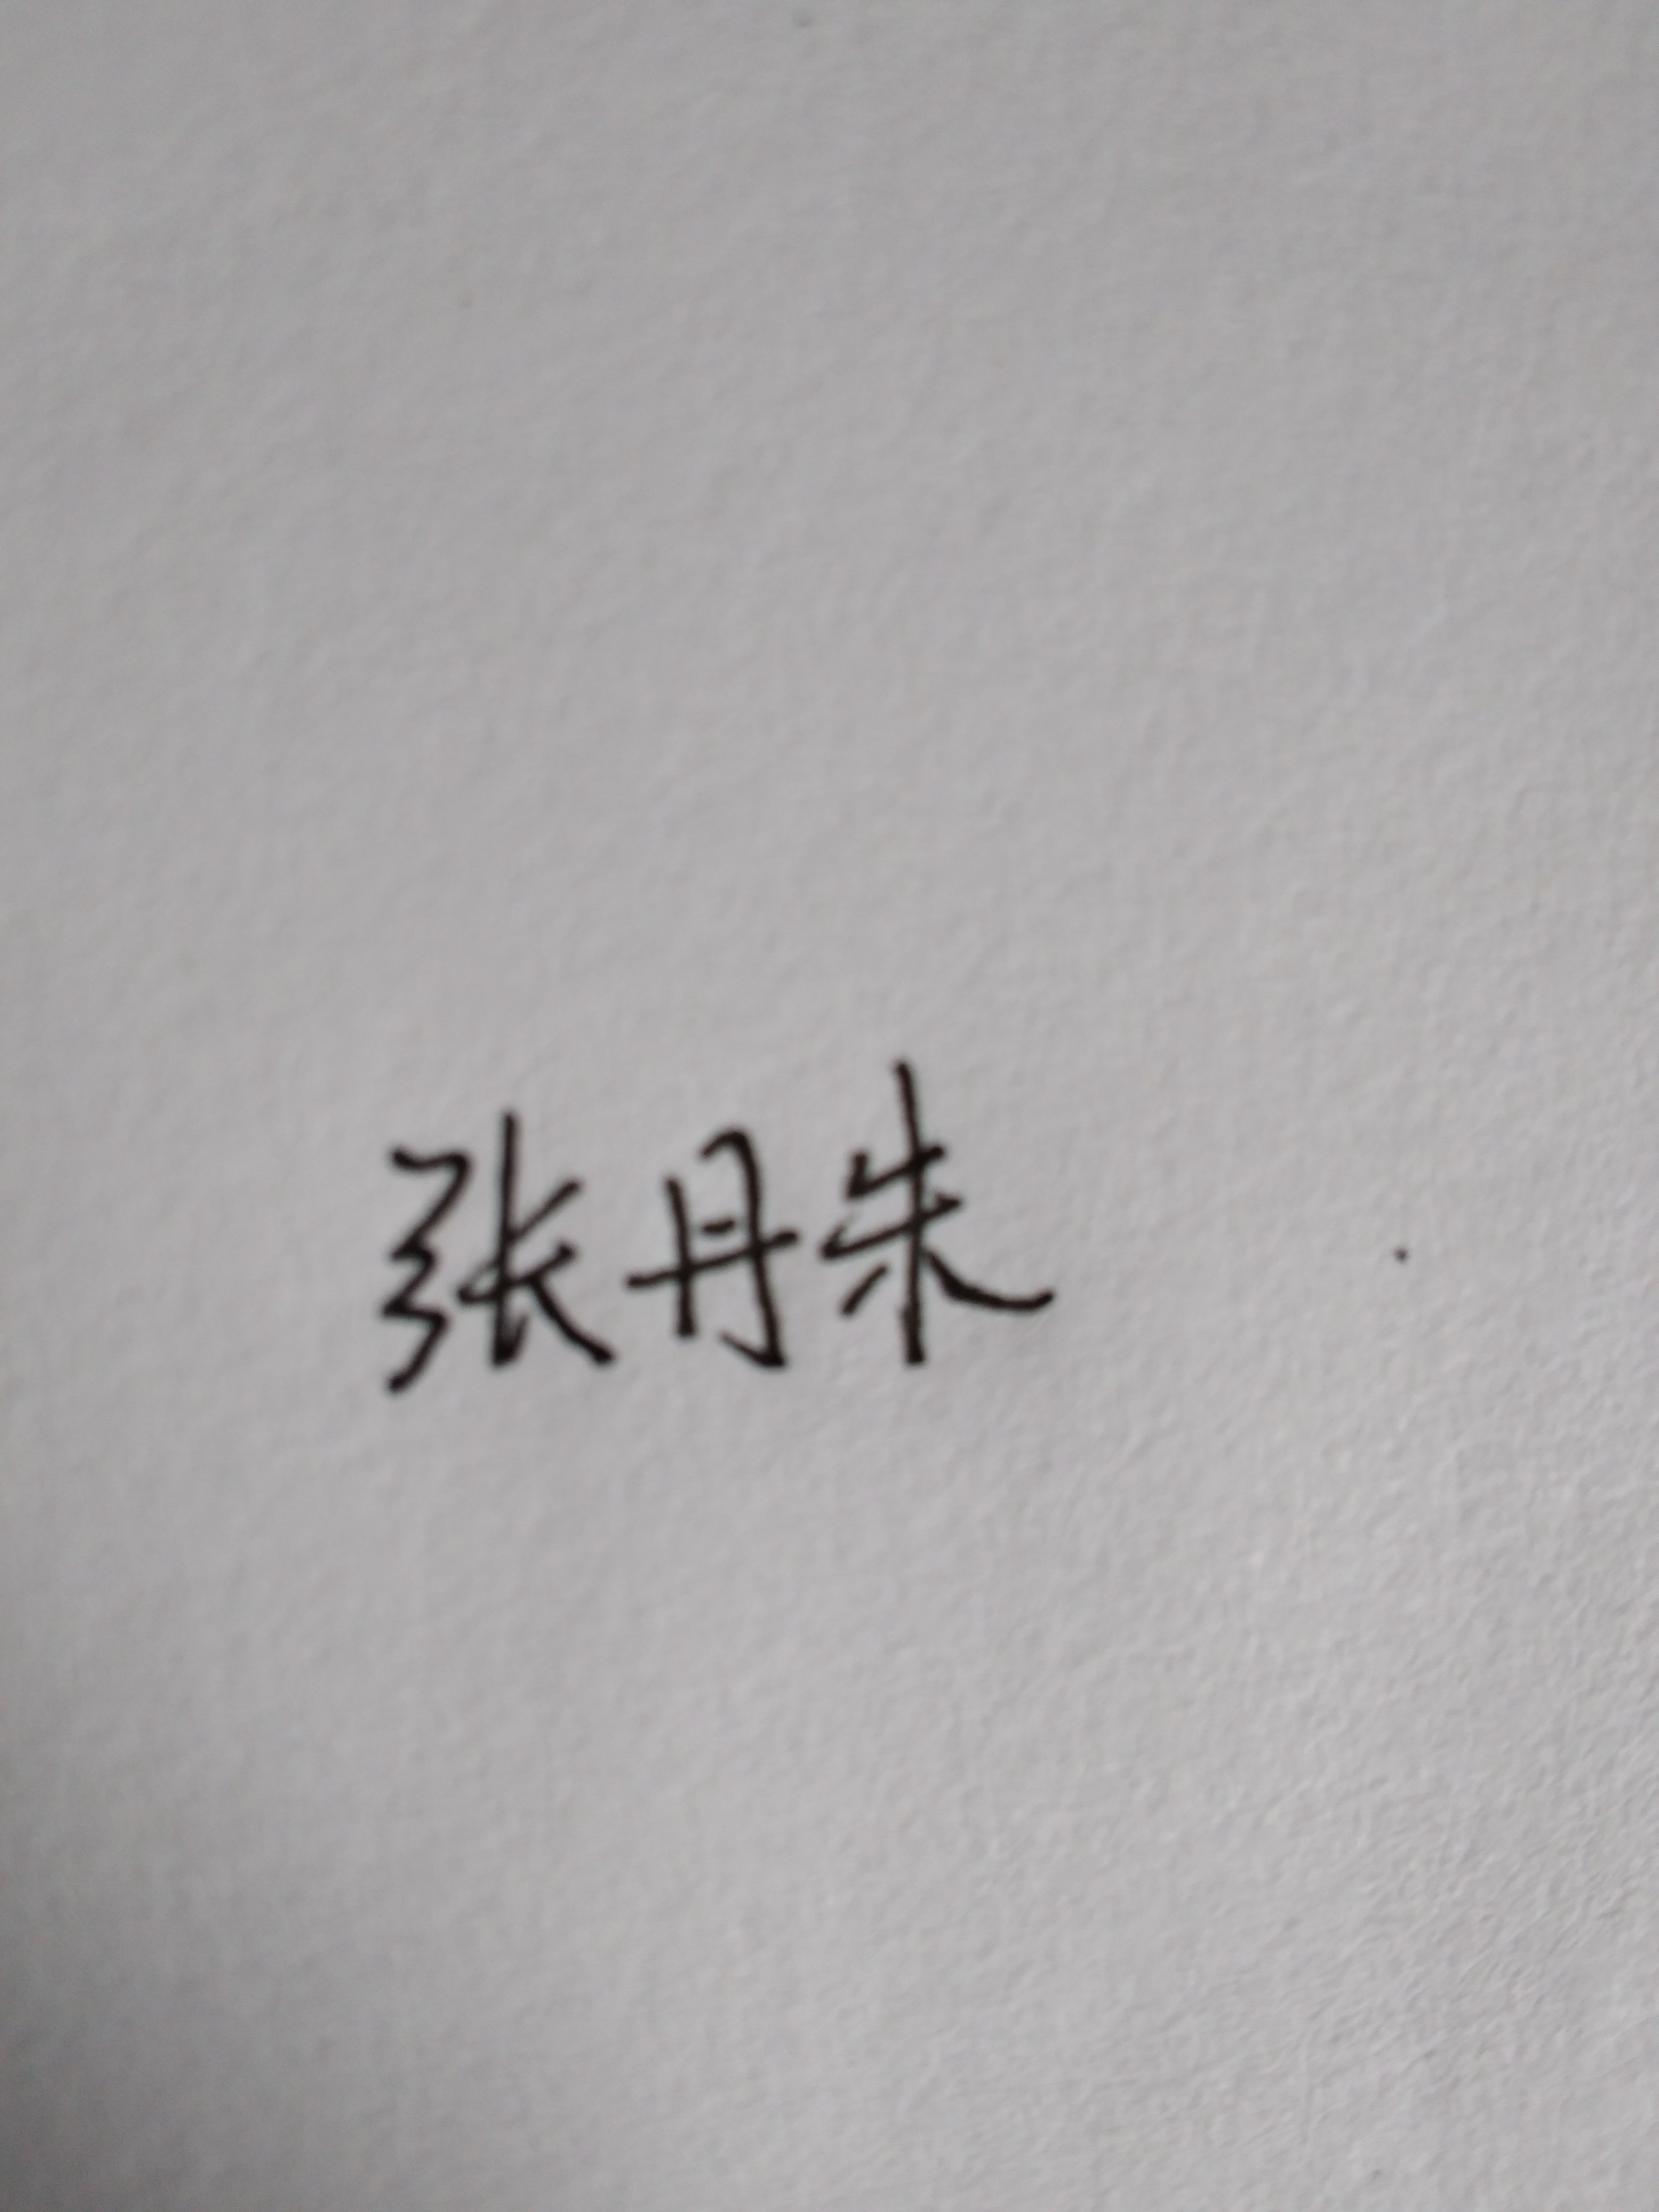 张丹朱